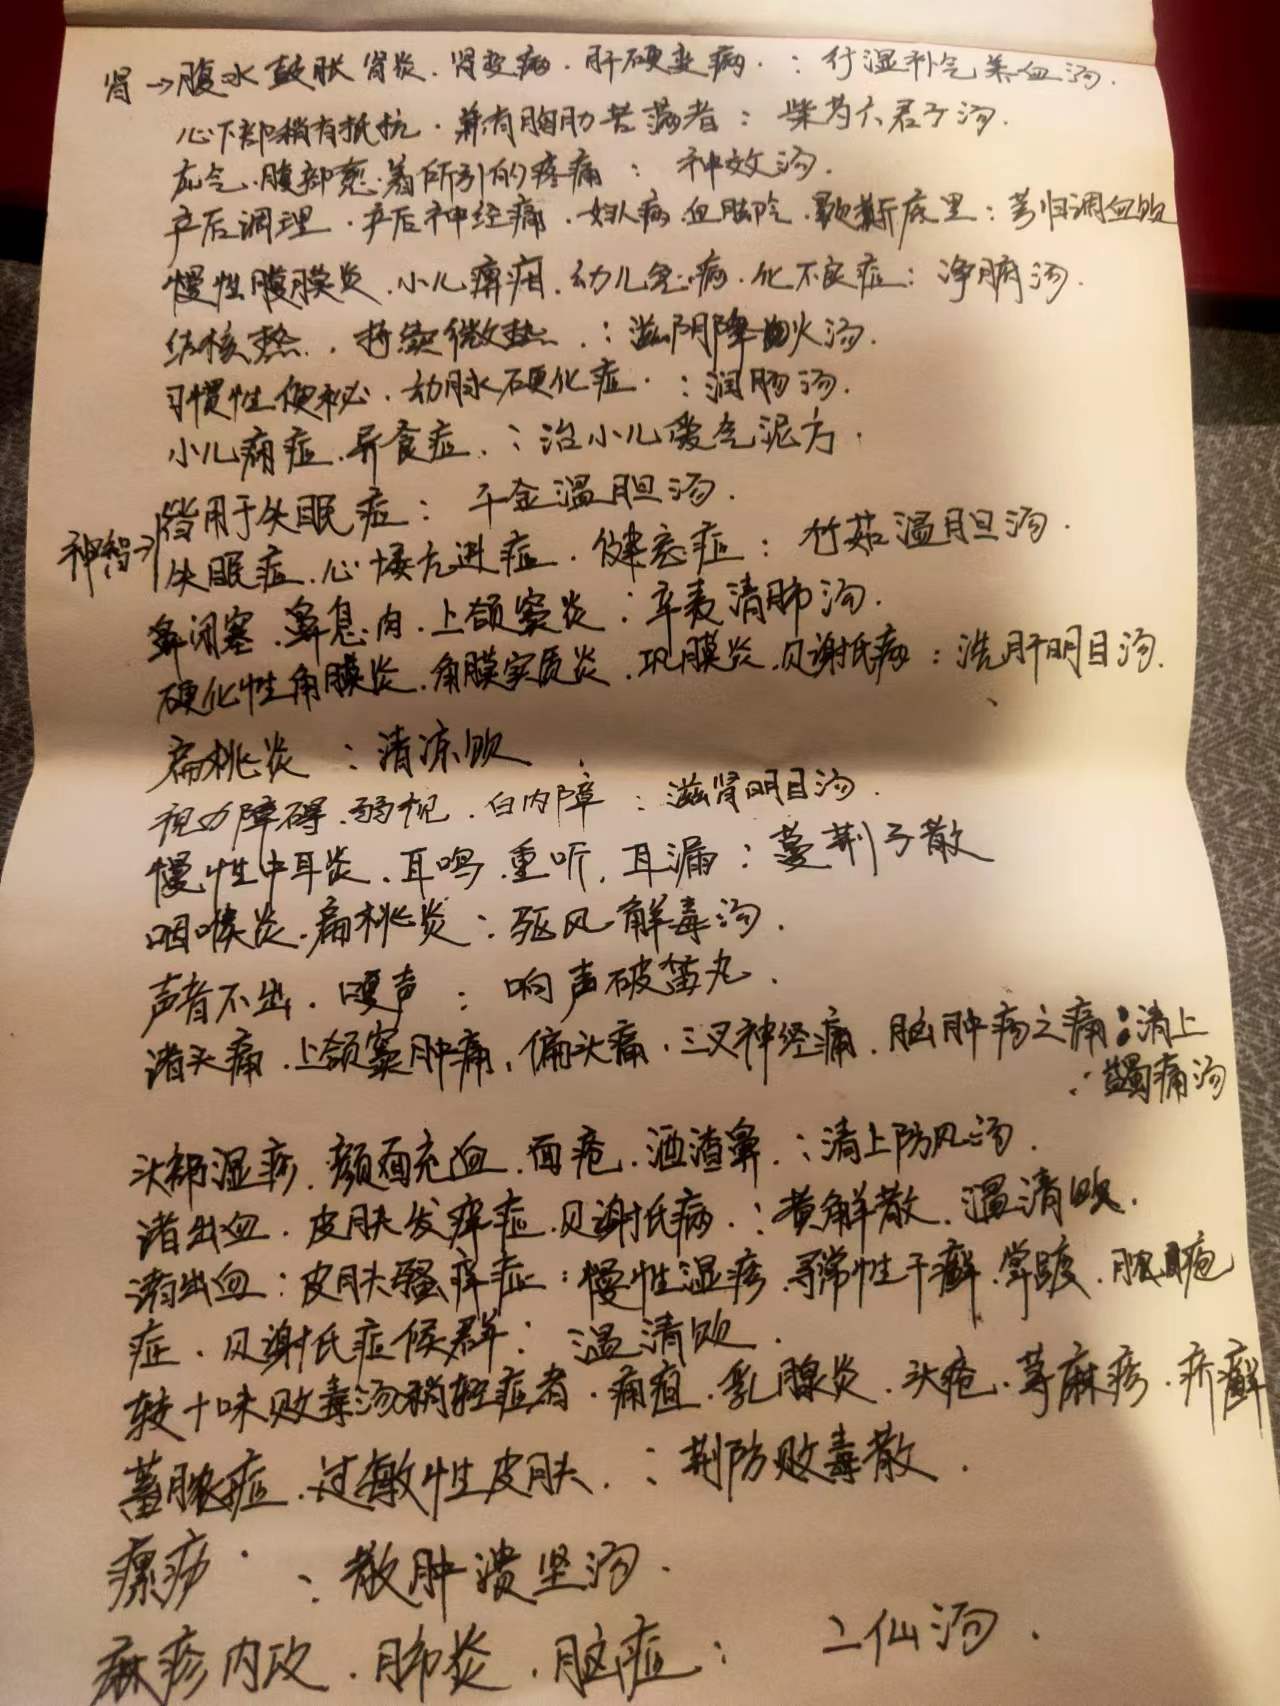 肾→腹水鼓胀肾炎.肾变病.肝硬变病.:行湿补气养血汤.
心下部稍有抵抗.兼有胸肋苦满者:柴芍六君子汤.
疝气.腹部悪.着所引的疼痛:神效汤.
产后调理.产后神经痛.妇人病.血脚气.歇斯底里:芎归调血饮
慢性腹膜炎.小儿痹疳.幼儿兔病.化不良症:净腑汤.
结核热..持续微热.:滋阴降火汤.
习惯性便秘.动脉硬化症.:润肠汤.
小儿疳症.异食症.:治小儿爱吃泥方.
皆用于失眠症:千金温胆汤.
神智→失眠症.心悸亢进症.健忘症:竹茹温胆汤.
鼻闭塞.鼻息肉.上颌窦炎:辛夷清肺汤.
硬化性角膜炎.角膜实质炎.巩膜炎.贝谢氏病:洗肝明目汤.
扁桃炎:清凉饮
视力障碍.弱视.白内障:滋肾明目汤.
慢性中耳炎.耳鸣.重听.耳漏:蔓荆子散
咽喉炎.扁桃炎:驱风解毒汤.
声音不出.嗄声:响声破笛丸.
诸头痛.上颌窦肿痛,偏头痛.三叉神经痛.脑肿疡之痛:清上
:蠲痛汤
头部湿疹.颜面充血.面疮.酒渣鼻.:清上防风汤.
诸出血.皮肤发痒症.贝谢氏病.:黄解散.温清饮.
诸出血:皮肤骚痒症:慢性湿疹.寻常性干癣.掌蹠.脓疱
症.贝谢氏症候群:温清饮.
较十味败毒汤稍轻症者.痈疽.乳腺炎.头疮.荨麻疹.疥癣
蓄脓症.过敏性皮肤.:荆防败毒散.
瘰疬.:散肿溃坚汤.
麻疹内攻.肺炎.脑症:二仙汤.